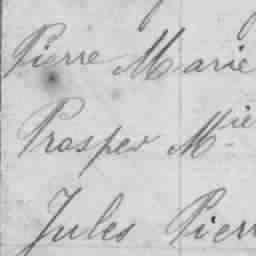 Pierre Marie
Prosper Mie
Jules Pierr